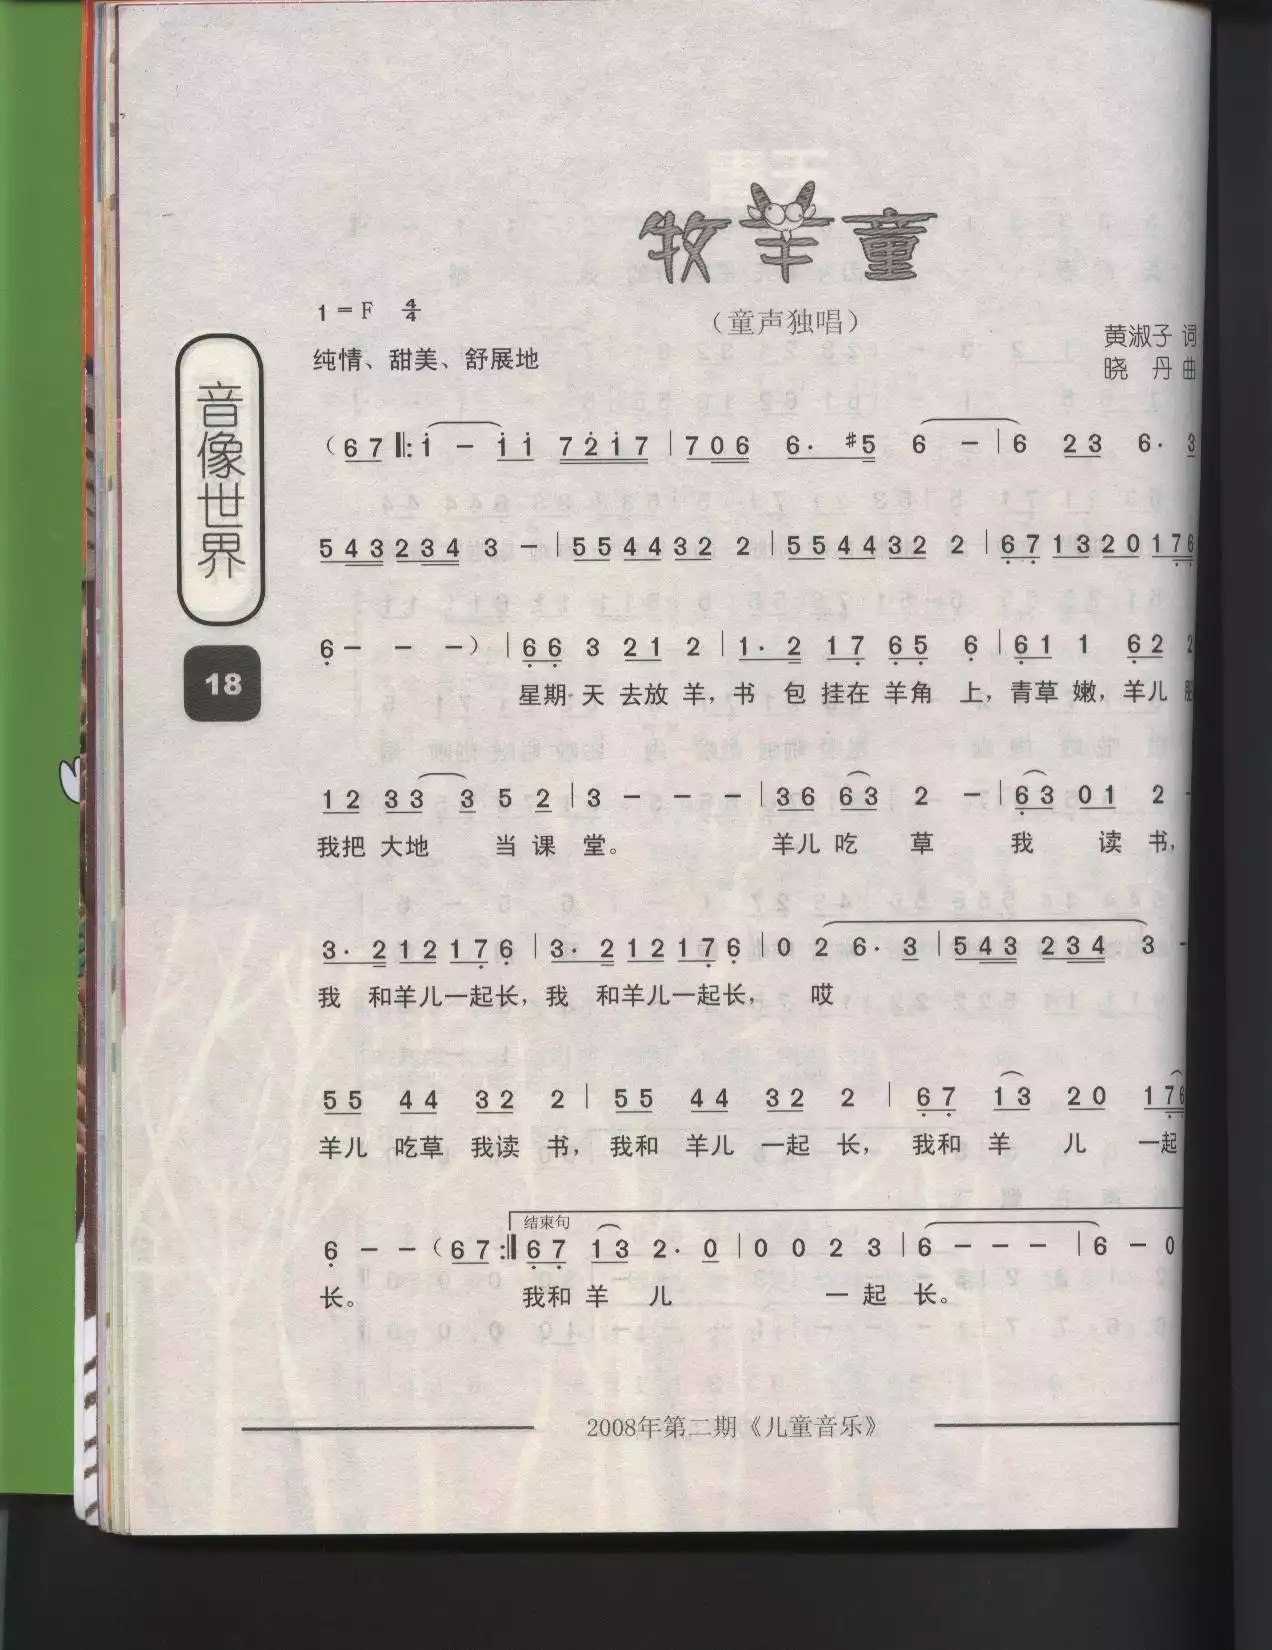 牧羊童
1=F 4/4
（童声独唱）
黄淑子 词
纯情、甜美、舒展地
晓 丹 曲
音像世界
18
（6 7 ‖: i － i i 7 2̇ i 7 | 7 0 6 6· #5 6 － | 6 2 3 6· 3
5 4 3 2 3 4 3 － | 5 5 4 4 3 2 2 | 5 5 4 4 3 2 2 | 6̣ 7̣ 1 3 2 0 1 7̣ 6̣
6̣ － － －） | 6̣ 6̣ 3 2 1 2 | 1· 2 1 7̣ 6̣ 5̣ 6̣ | 6̣ 1 1 6̣ 2 2
星期 天 去放 羊，书 包 挂在 羊角 上，青草 嫩，羊儿
1 2 3 3 3 5 2 | 3 － － － | 3 6 6 3 2 － | 6̣ 3 0 1 2 －
我把 大地 当 课 堂。 羊儿 吃 草 我 读 书，
3· 2 1 2 1 7̣ 6̣ | 3· 2 1 2 1 7̣ 6̣ | 0 2 6· 3 | 5 4 3 2 3 4 3 －
我 和羊儿一起长，我 和羊儿一起长， 哎
5 5 4 4 3 2 2 | 5 5 4 4 3 2 2 | 6̣ 7̣ 1 3 2 0 1 7̣ 6̣
羊儿 吃草 我读 书，我和 羊儿 一起 长， 我和 羊 儿 一起
结束句
6̣ － － （6 7 :‖ 6̣ 7̣ 1 3 2· 0 | 0 0 2 3 | 6 － － － | 6 － 0
长。 我和 羊 儿 一 起 长。
2008年第二期《儿童音乐》